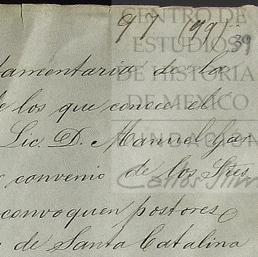 CENTRO DE
ESTUDIOS
DE HISTORIA
DE MEXICO
39
tamentaria de la
e los que conoce el
Lic. D. Manuel Gar
convenio de los Sres
convoquen postores
de Santa Catalina